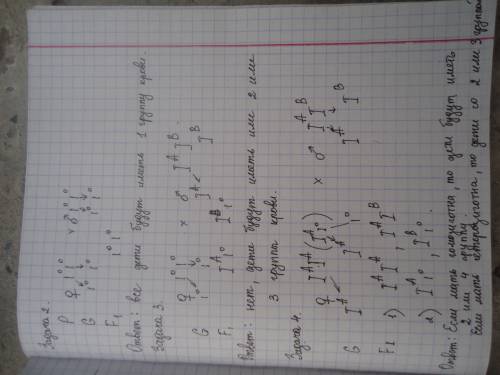 Задача 2.
P ♀ i⁰i⁰ x ♂ i⁰i⁰
G i⁰ i⁰ i⁰
F₁ i⁰i⁰
Ответ: все дети будут иметь 1 группу крови.
Задача 3.
♀ i⁰i⁰ x ♂ Iᴬ Iᴮ
G i⁰ i⁰ Iᴬ Iᴮ
F₁ Iᴬi⁰, Iᴮi⁰
Ответ: нет, дети будут иметь или 2 или
3 группа крови.
Задача 4.
♀ IᴬIᴬ (Iᴬi⁰) x ♂ Iᴬ Iᴮ
G Iᴬ Iᴬ i⁰ Iᴬ Iᴮ
F1 1) IᴬIᴬ, IᴬIᴮ
2) Iᴬi⁰, Iᴮi⁰.
Ответ: Если мать гомозиготна, то дети будут иметь
2 или 4 группу.
Если мать гетерозиготна, то дети со 2 или 3 группой